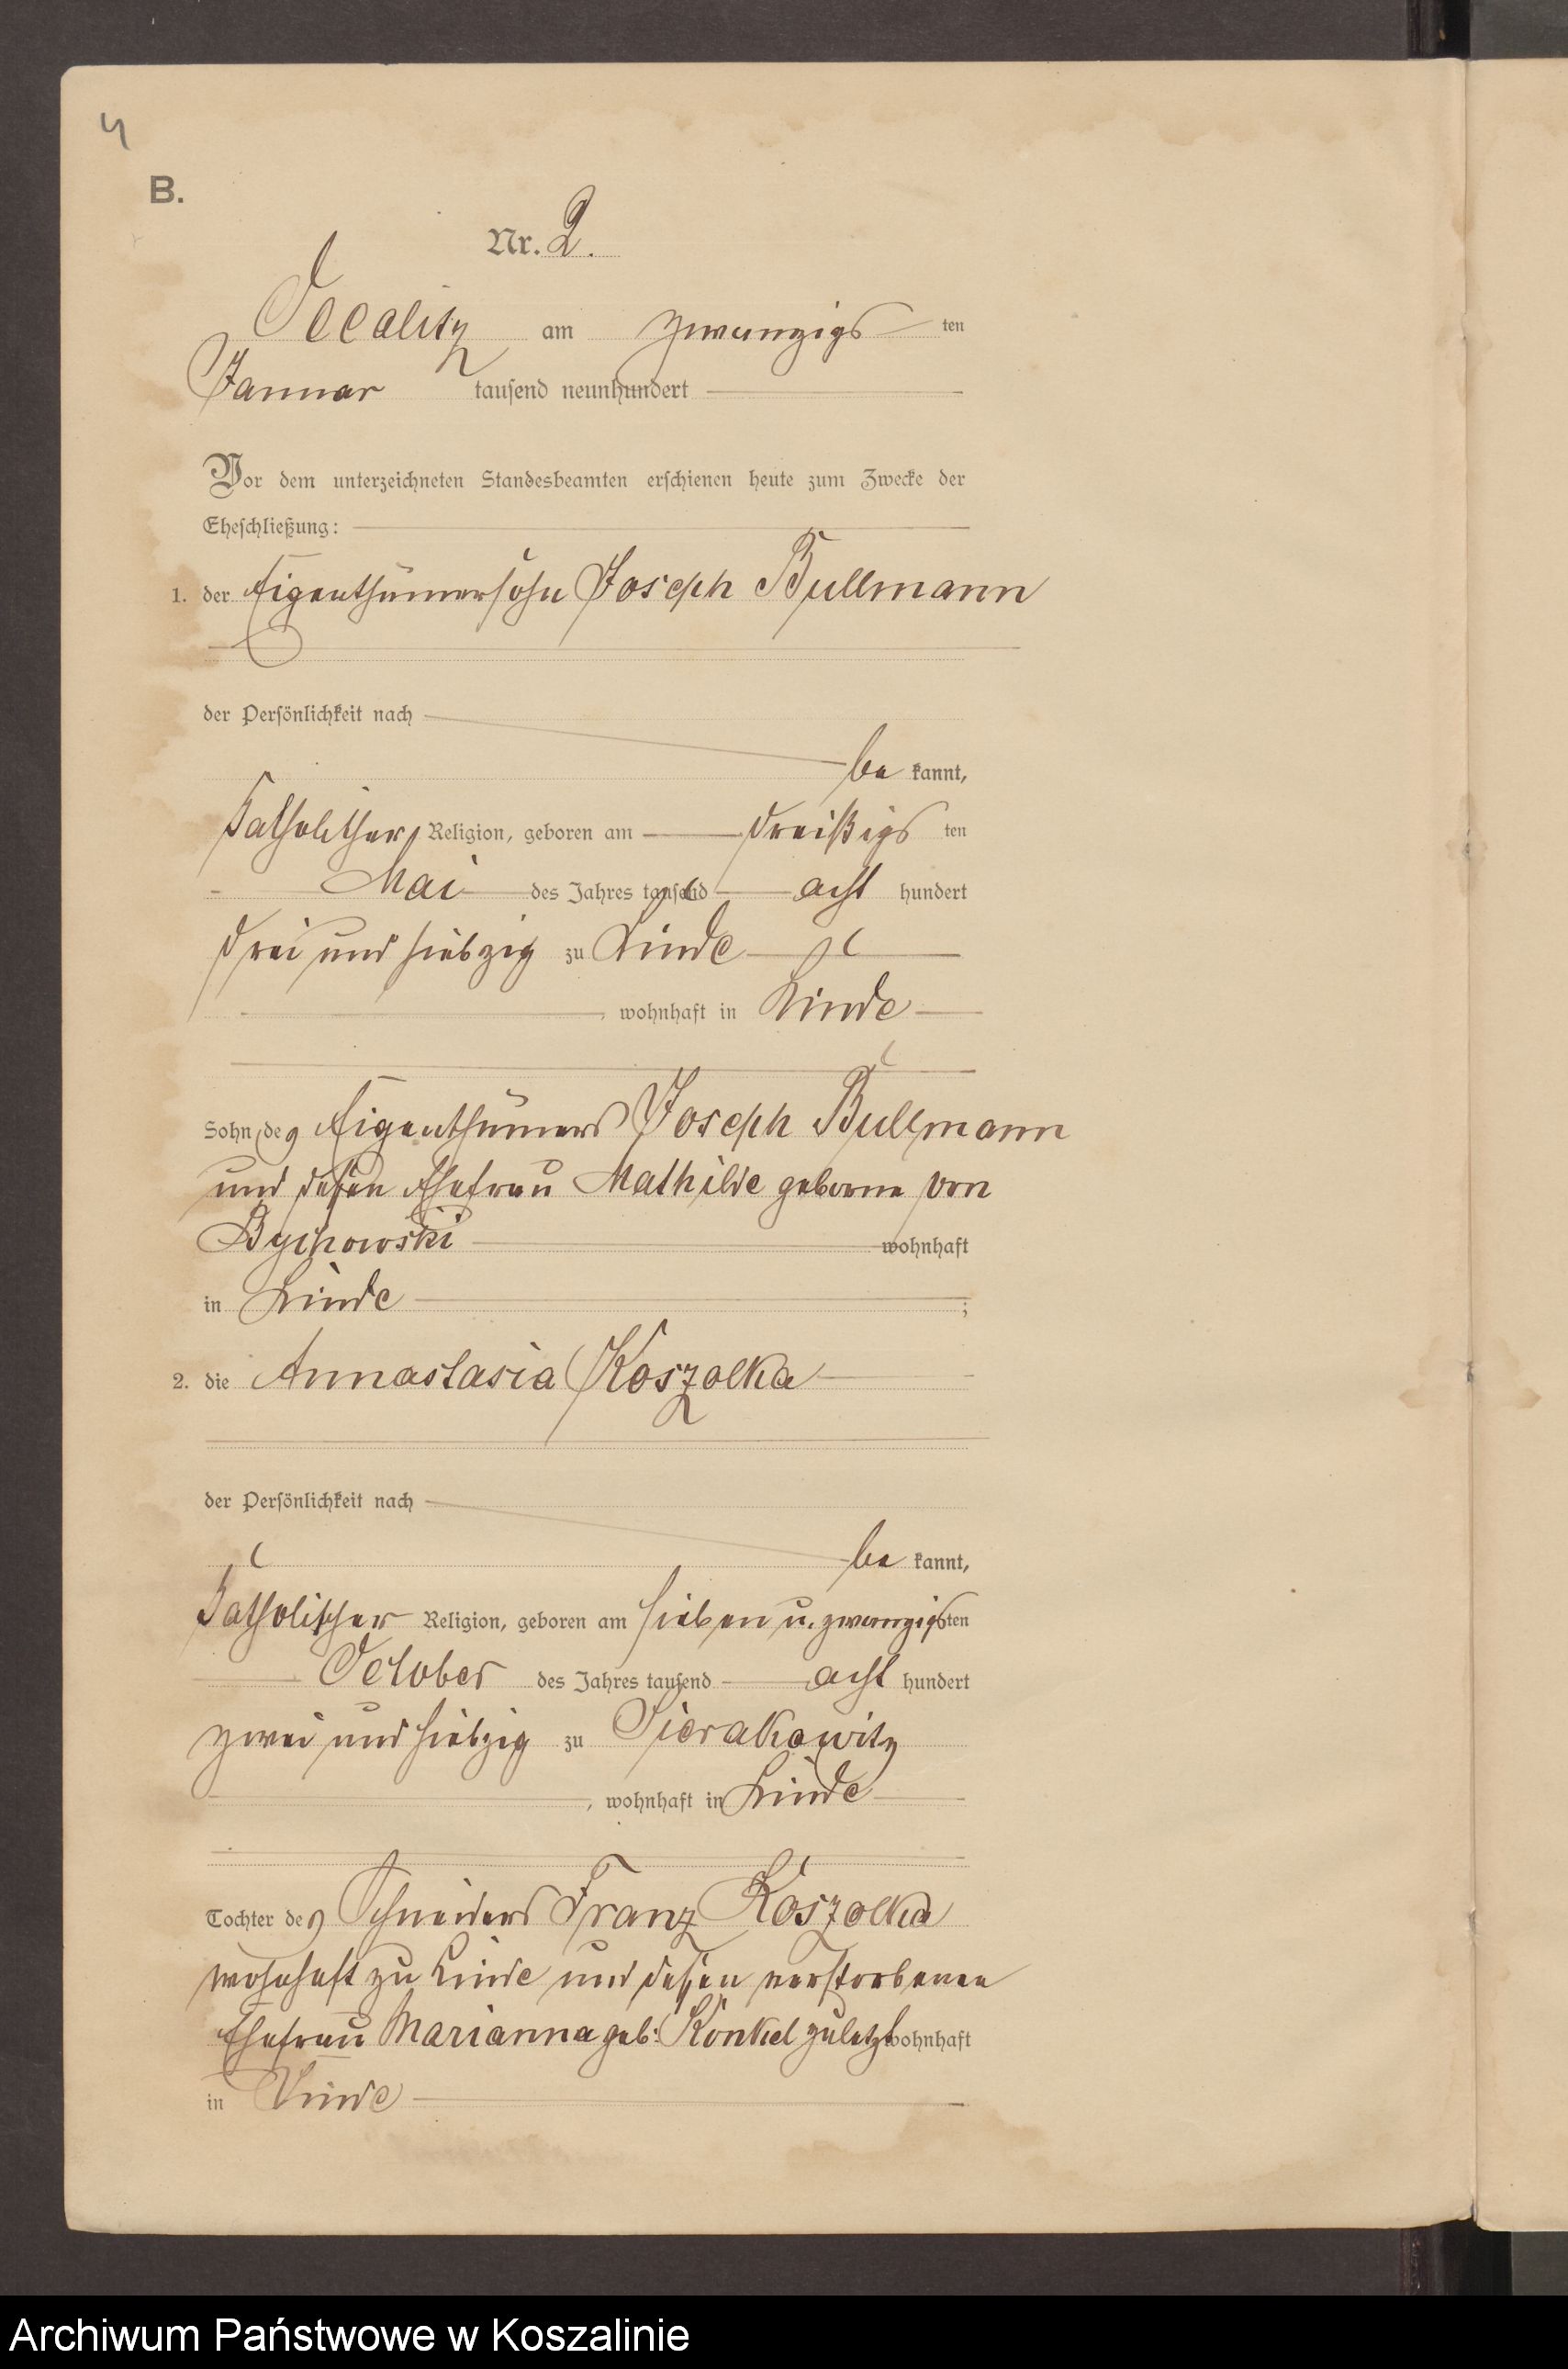 4
B.
Nr. 2.
Occalitz am zwanzigs ten
Januar tausend neunhundert
Vor dem unterzeichneten Standesbeamten erschienen heute zum Zwecke der
Eheschließung:
1. der Eigenthümersohn Joseph Bullmann
der Persönlichkeit nach
be kannt,
katholischer Religion, geboren am dreißigs ten
Mai des Jahres tausend acht hundert
drei und siebzig zu Linde
, wohnhaft in Linde
Sohn des Eigenthümers Joseph Bullmann
und dessen Ehefrau Mathilde geborne von
Bychowski wohnhaft
in Linde ;
2. die Annastasia Koszalka
der Persönlichkeit nach
be kannt,
katholischer Religion, geboren am sieben u. zwanzigsten
October des Jahres tausend acht hundert
zwei und siebzig zu Sierakowitz
, wohnhaft in Linde
Tochter des Schneiders Franz Koszalka
wohnhaft zu Linde und dessen verstorbenen
Ehefrau Marianna geb: Konkel zuletzt wohnhaft
in Linde
Archiwum Państwowe w Koszalinie